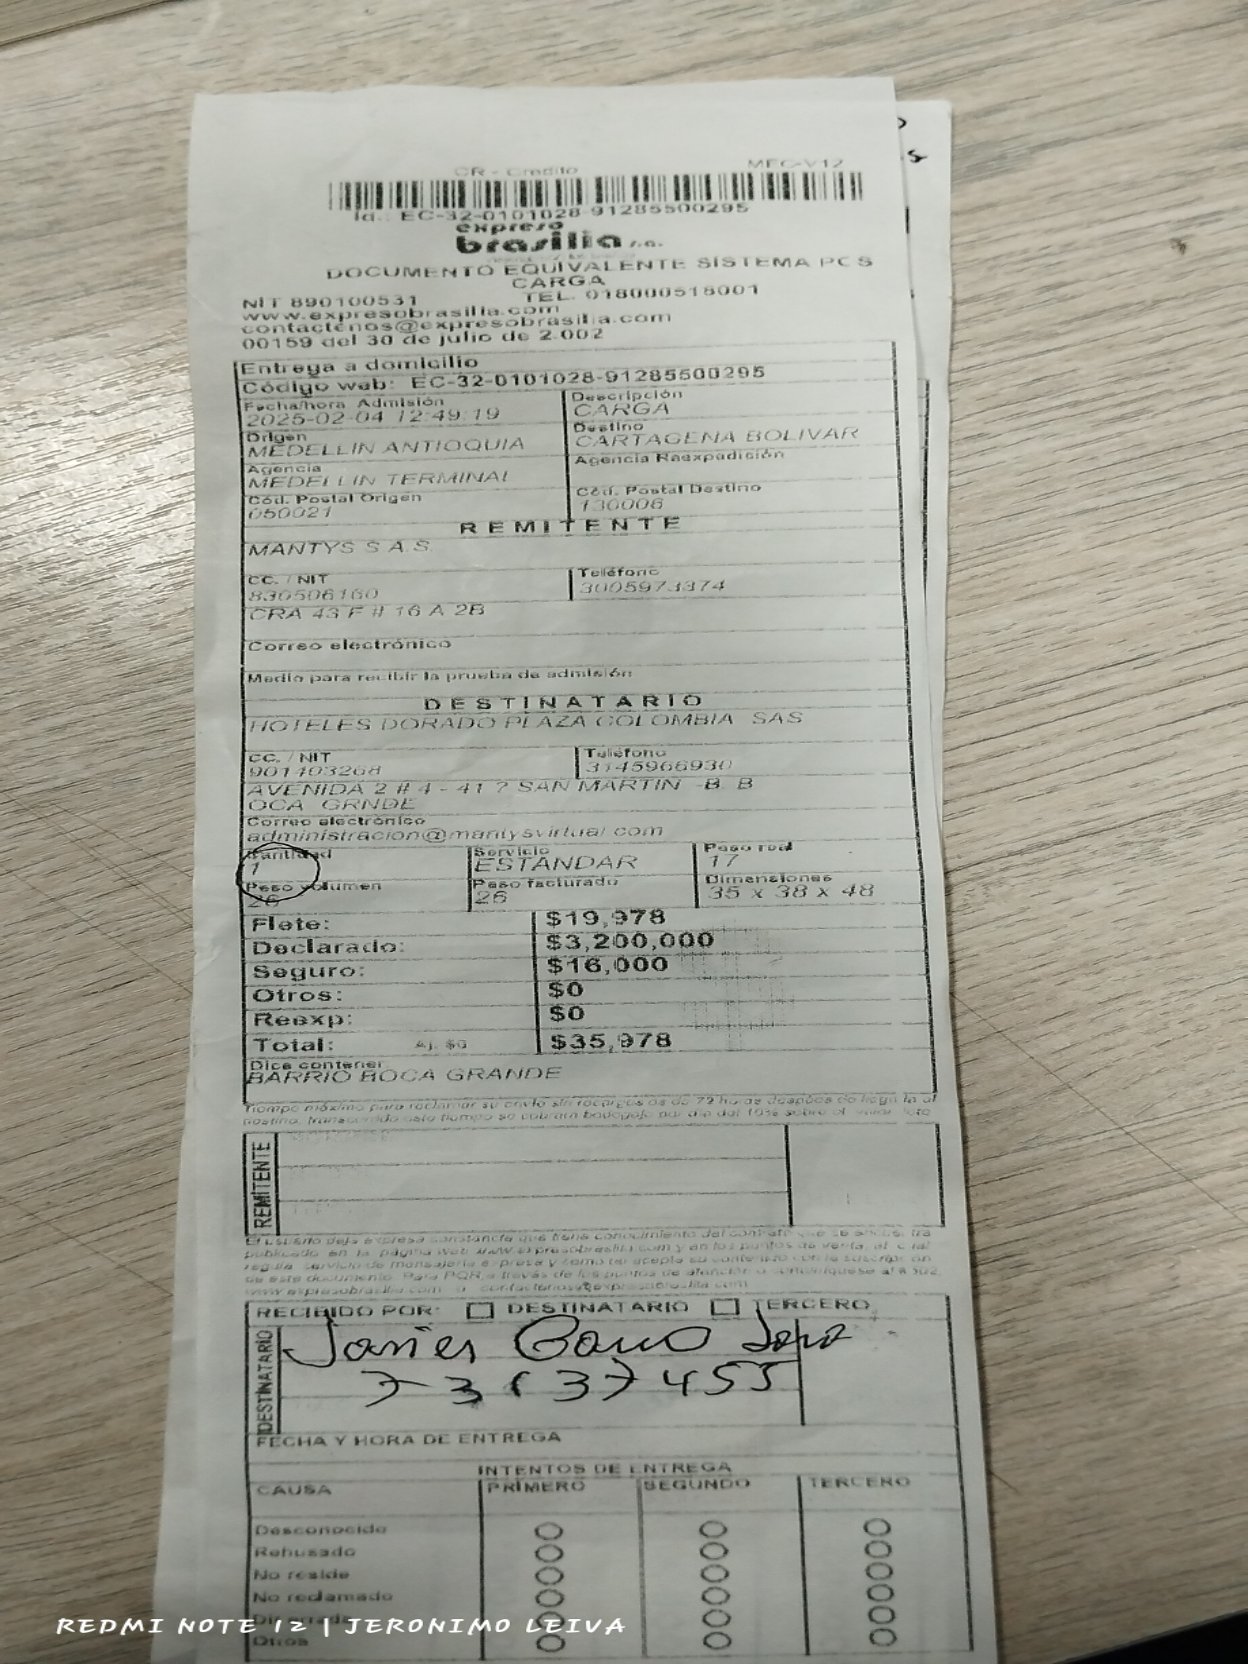 CR - Credito MEC-V12
Id.: EC-32-0101028-91285500295
expreso
brasilia s.a.
DOCUMENTO EQUIVALENTE SISTEMA POS
CARGA
NIT 890100531 TEL. 018000518001
www.expresobrasilia.com
contactenos@expresobrasilia.com
00159 del 30 de julio de 2.002
Entrega a domicilio
Código web: EC-32-0101028-91285500295
Fecha/hora Admisión Descripción
2025-02-04 12:49:19 CARGA
Origen Destino
MEDELLIN ANTIOQUIA CARTAGENA BOLIVAR
Agencia Agencia Reexpedición
MEDELLIN TERMINAL
Cód. Postal Origen Cód. Postal Destino
050021 130006
REMITENTE
MANTYS S A S
CC. / NIT Teléfono
830506160 3005973374
CRA 43 F # 16 A 2B
Correo electrónico
Medio para recibir la prueba de admisión
DESTINATARIO
HOTELES DORADO PLAZA COLOMBIA SAS
CC. / NIT Teléfono
901403268 3145966930
AVENIDA 2 # 4 - 41 ? SAN MARTIN -B. B
OCA GRNDE
Correo electrónico
administracion@mantysvirtual.com
Cantidad Servicio Peso real
1 ESTANDAR 17
Peso volumen Peso facturado Dimensiones
26 26 35 x 38 x 48
Flete: $19,978
Declarado: $3,200,000
Seguro: $16,000
Otros: $0
Reexp: $0
Total: Aj. $0 $35,978
Dice contener
BARRIO BOCA GRANDE
Tiempo máximo para reclamar su envío sin recargos es de 72 horas después de llegada al
destino, transcurrido este tiempo se cobrará bodegaje por día del 10% sobre el valor flete
REMITENTE
El usuario deja expresa constancia que tiene conocimiento del contrato que se encuentra
publicado en la página web www.expresobrasilia.com y en los puntos de venta, el cual
regula servicio de mensajería expresa y como tal acepta su contenido con la suscripción
de este documento. Para PQR a través de los puntos de atención o
www.expresobrasilia.com o contactenos@expresobrasilia.com
RECIBIDO POR: DESTINATARIO TERCERO
DESTINATARIO
Javier
FECHA Y HORA DE ENTREGA
INTENTOS DE ENTREGA
CAUSA PRIMERO SEGUNDO TERCERO
Desconocido
Rehusado
No reside
No reclamado
Dir errada
Otros
REDMI NOTE 12 | JERONIMO LEIVA